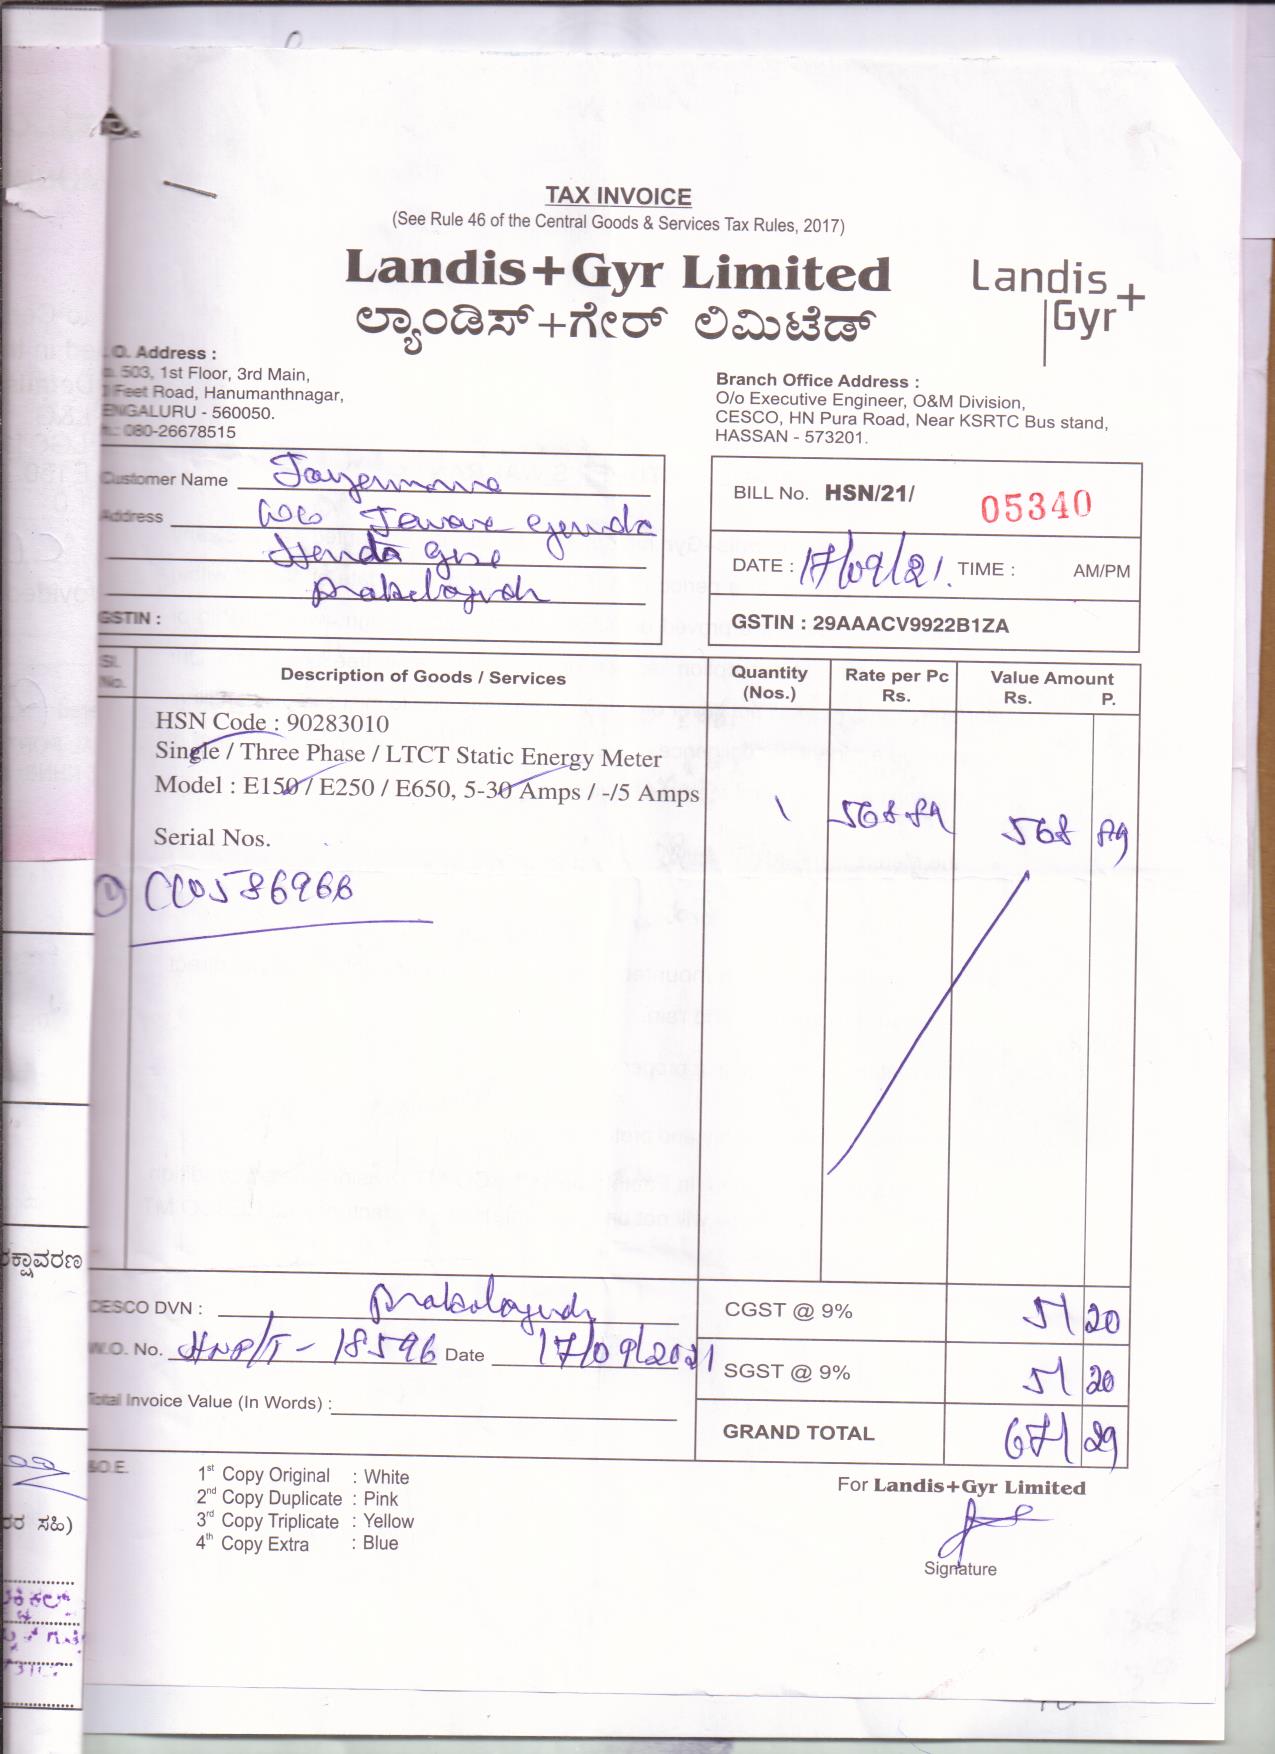 TAX INVOICE
(See Rule 46 of the Central Goods & Services Tax Rules, 2017)
Landis+Gyr Limited
ಲ್ಯಾಂಡಿಸ್+ಗೇರ್ ಲಿಮಿಟೆಡ್
Landis
Gyr+
.O. Address :
503, 1st Floor, 3rd Main,
Feet Road, Hanumanthnagar,
ENGALURU - 560050.
080-26678515
Branch Office Address :
O/o Executive Engineer, O&M Division,
CESCO, HN Pura Road, Near KSRTC Bus stand,
HASSAN - 573201.
Customer Name
Address
GSTIN :
BILL No. HSN/21/ 05340
DATE : 17/09/21. TIME : AM/PM
GSTIN : 29AAACV9922B1ZA
Sl. No. Description of Goods / Services Quantity (Nos.) Rate per Pc Rs. Value Amount Rs. P.
HSN Code : 90283010
Single / Three Phase / LTCT Static Energy Meter
Model : E150 / E250 / E650, 5-30 Amps / -/5 Amps
1 568 89 568 89
Serial Nos.
1
CESCO DVN :
W.O. No. HNP/T - 18596 Date 17/09/2021
Total Invoice Value (In Words) :
CGST @ 9% 51 20
SGST @ 9% 51 20
GRAND TOTAL 671 29
&O.E.
1st Copy Original : White
2nd Copy Duplicate : Pink
3rd Copy Triplicate : Yellow
4th Copy Extra : Blue
For Landis+Gyr Limited
Signature